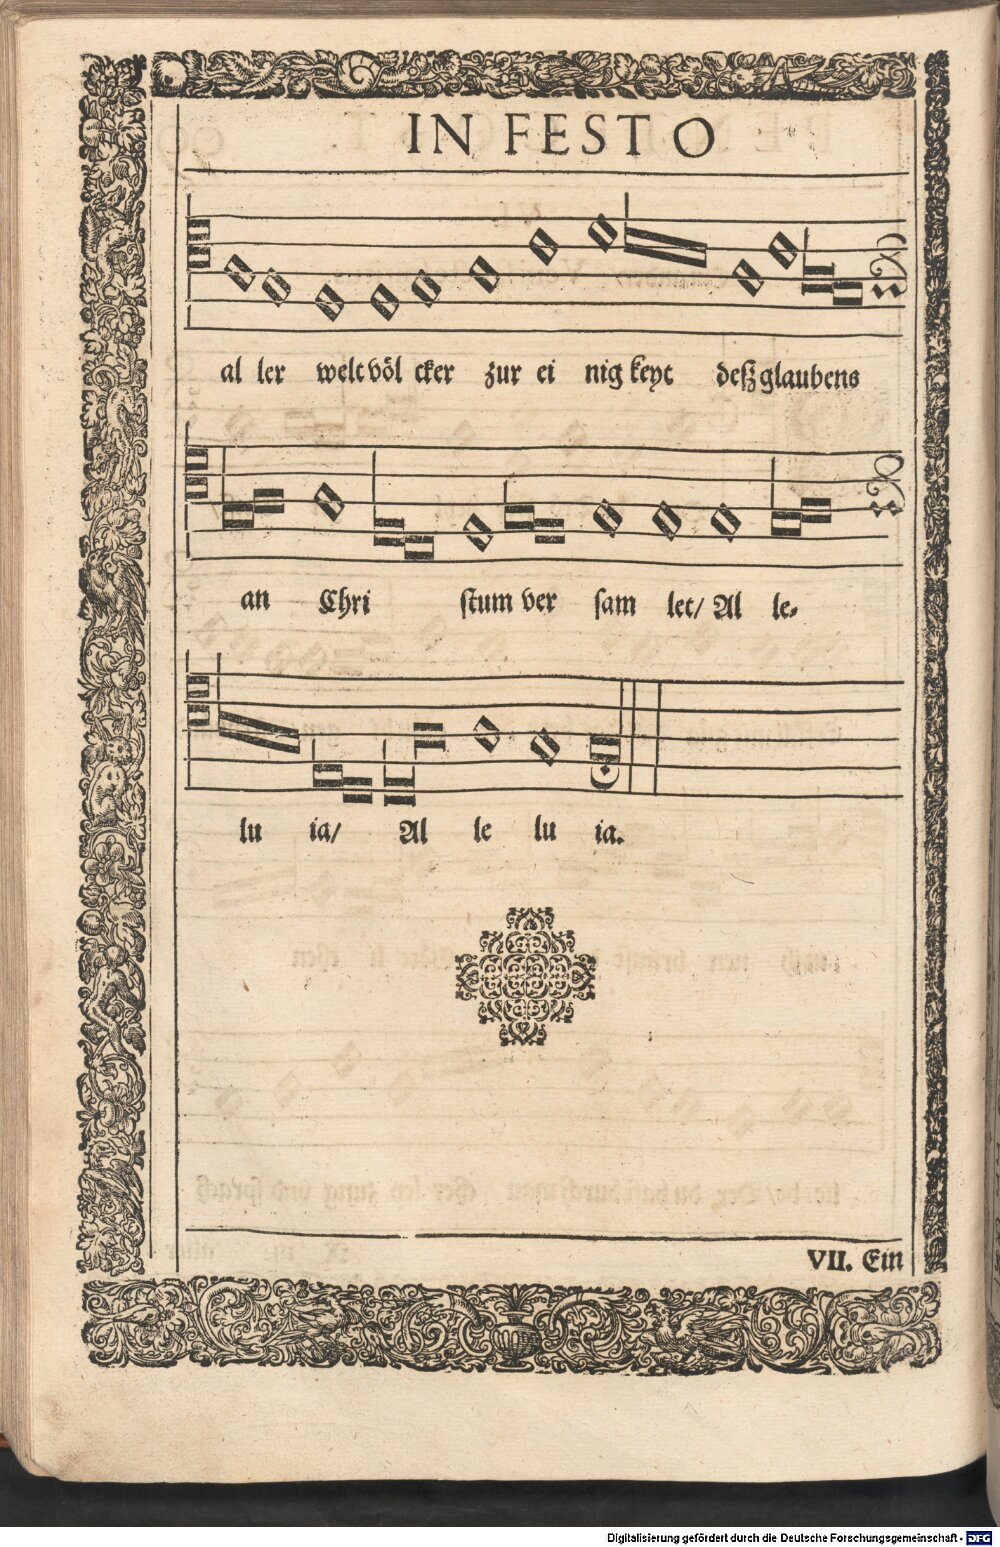 IN FESTO
al ler welt völ cker zur ei nig keyt deß glaubens
an Chri stum ver sam let/ Al le-
lu ia/ Al le lu ia.
VII. Ein
Digitalisierung gefördert durch die Deutsche Forschungsgemeinschaft - DFG